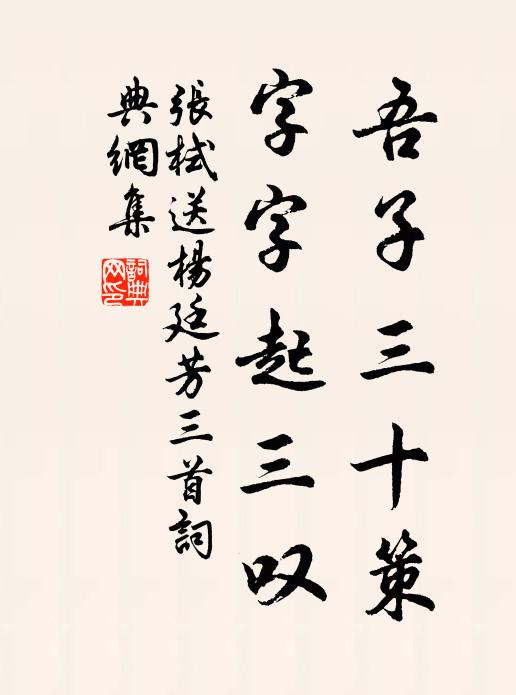 吾子三十策
字字起三叹
張栻送楊廷芳三首詞
典網集
詞典网印